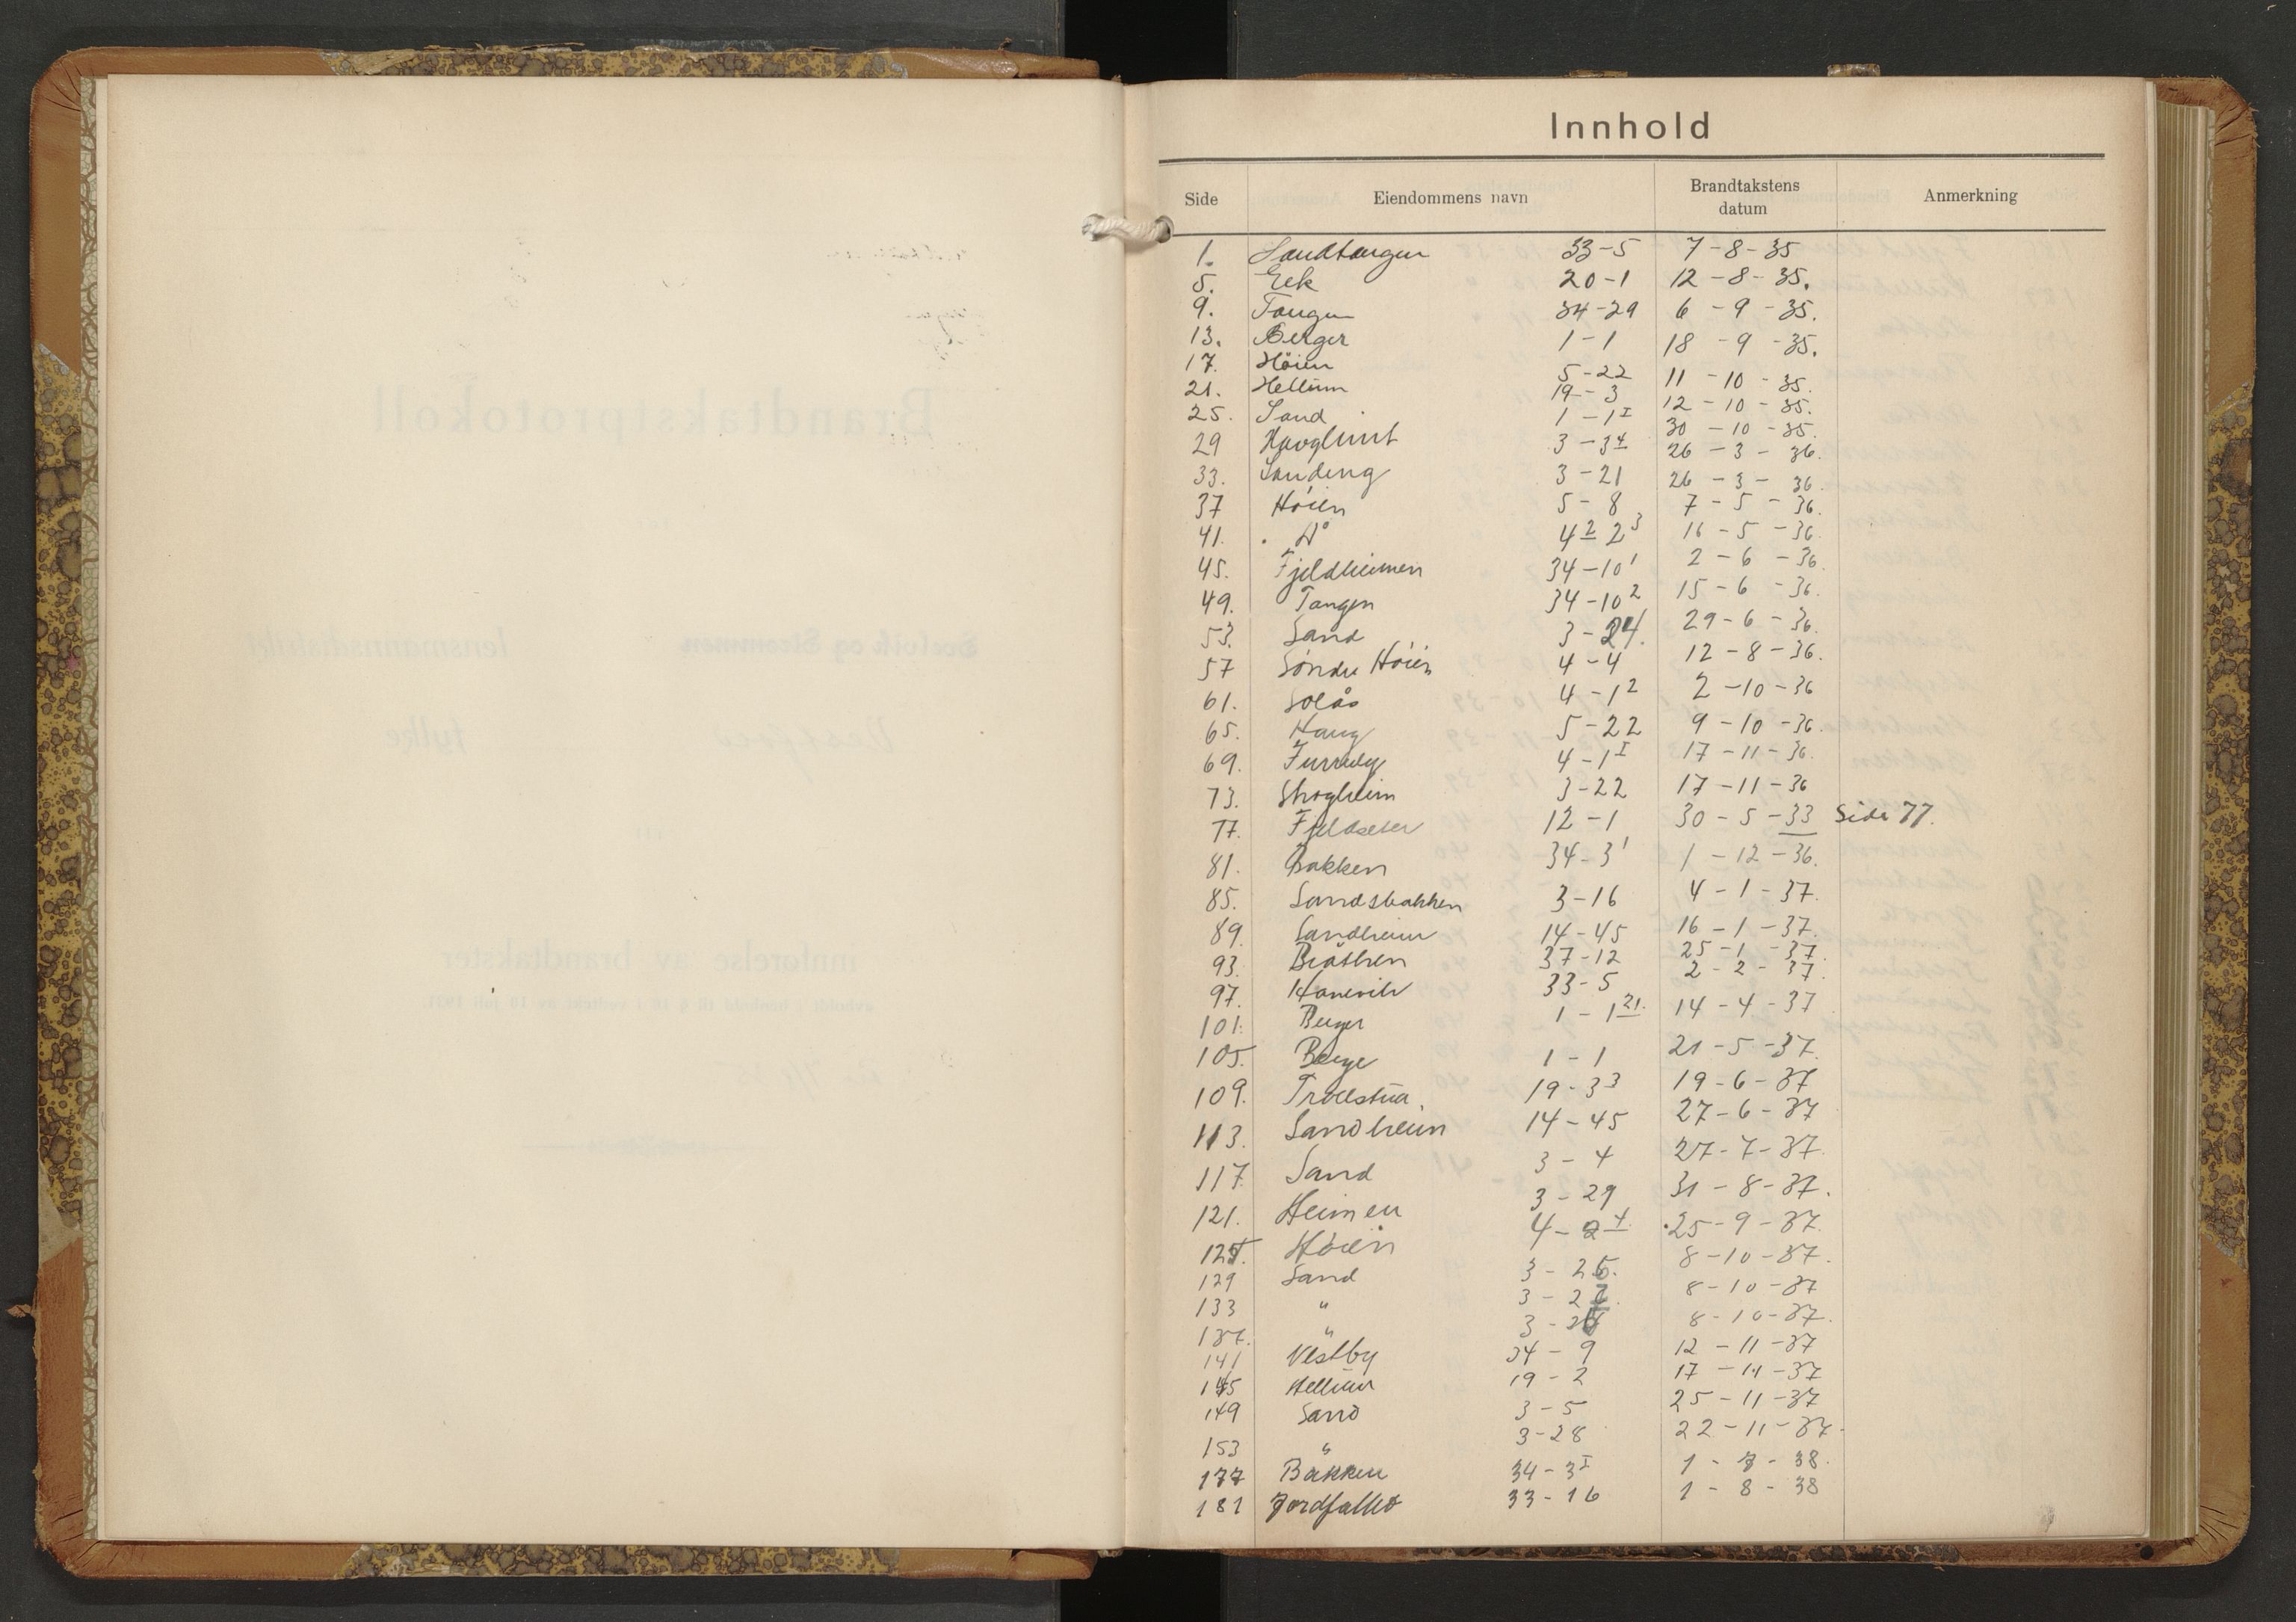 Innhold
Side Eiendommens navn Brandtakstens datum Anmerkning
1. Sandtangen 33-5 7-8-35
5. Eek 20-1 12-8-35.
9. Tangen 34-29 6-9-35.
13. Berger 1-1 18-9-35.
17. Höien 5-22 11-10-35.
21. Hellum 19-3 12-10-35.
25. Sand 1-1 I 30-10-35.
29 Hauglunt 3-3 4 26-3-36.
33. Sandeng 3-21 26-3-36.
37 Höien 5-8 7-5-36.
41. Dº 4 2 2 3 16-5-36
45. Fjeldheimen 34-10 1 2-6-36.
49. Tangen 34-10 2 15-6-36.
53. Sand 3-24. 29-6-36.
57 Söndre Höien 4-4 12-8-36.
61. Solås 4-1 2 2-10-36
65. Haug 5-22 9-10-36.
69. Furruly 4-1 I 17-11-36.
73. Skogheim 3-22 17-11-36
77. Fjeldseter 12-1 30-5-33 Side 77.
81. Bakken 34-3 1 1-12-36.
85. Sandsbakken 3-16 4-1-37.
89. Sandheim 14-45 16-1-37.
93. Bråthen 37-12 25-1-37.
97. Hanevik 33-5 2-2-37.
101. Berger 1-1 21. 14-4-37
105. Berge 1-1 21-5-37.
109. Trollstua. 19-3 3 19-6-37
113. Sandheim 14-45 27-6-37
117. Sand 3-4 27-7-37.
121. Heimen 3-29 31-8-37.
125. Höien 4-2 4. 25-9-37.
129 Sand 3-26. 8-10-37.
133 " 3-27. 8-10-37
137. " 8-10-37.
141 Vestby 34-9 12-11-37
145 Hellum 19-2 17-11-37
149 Sand 3-5 25-11-37
153 " 3-28 22-11-37.
177 Bakken 34-3 I 38.
181 Jordfallet 33-16 1-8-38